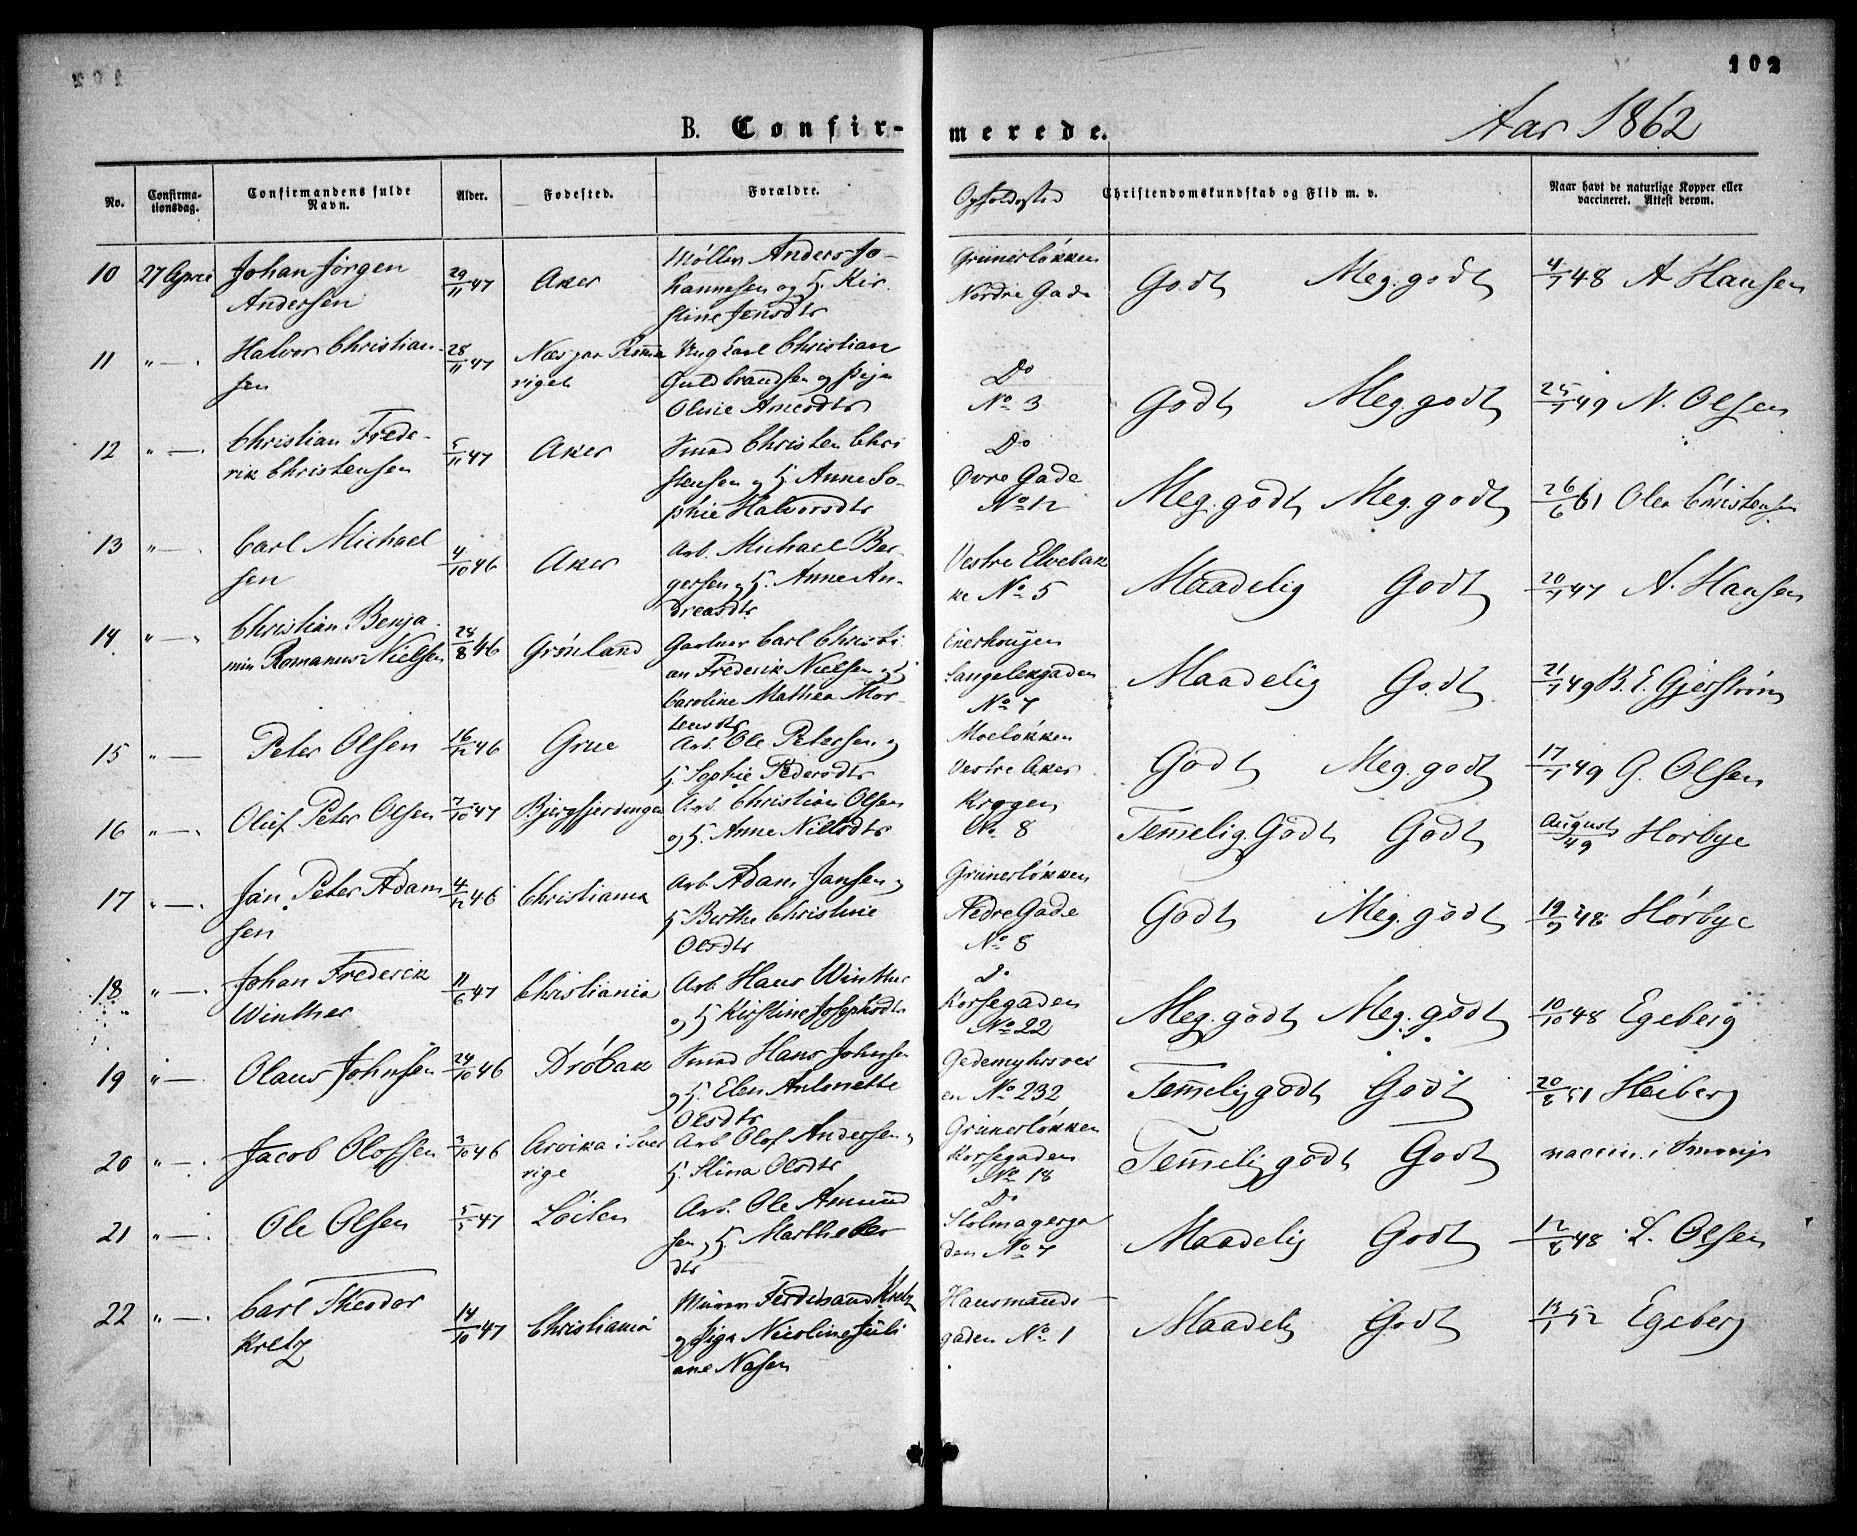 102
B. Confirmerede.
Aar 1862
No. Confirmationsdag. Confirmandens fulde Navn. Alder. Fødested. Forældre. Opholdssted Christendomskundskab og Flid m. v. Naar havt de naturlige Kopper eller vaccineret. Attest derom.
10 27 April Johan Jørgen Andersen 29/11 47 Aker Møller Anders Johannesen og H. Kirstine Jensdtr Grünerløkken Nordre Gade Godt Meg. godt 4/7 48 A Hansen
11 " — Halvor Christiansen 28/11 47 Næs paa Romerriget Ung Karl Christian Guldbrandsen og Pige Oline Arnesdtr Do No 3 Godt Meg. godt 25/7 49 N. Olsen
12 " — Christian Frederik Christensen 5/11 47 Aker Smed Christen Christensen og H. Anne Sophie Halvorsdtr Do Øvre Gade No 12 Meg. godt Meg. godt 26/6 61 Christensen
13 " — Carl Michaelsen 4/10 46 Aker Arb. Michael Bergersen og H. Anne Andreasdtr Vestre Elvebakke No 5 Maadelig Godt 20/7 47 A. Hansen
14 " — Christian Benjamin Romanus Nielsen 28/8 46 Grønland Gartner Carl Christian Frederik Nielsen og H Caroline Mathea Mortensdtr Enerhougen Langeleksgaden No 7 Maadelig Godt 21/7 49 B. E. Gjerstrøm
15 " — Peter Olsen 16/12 46 Grue Arb. Ole Petersen og H. Sophie Pedersdtr Moeløkken Vestre Aker Godt Meg. godt 17/7 49 G. Olsen
16 " — Oluf Peter Olsen 7/10 47 Bjergfjerdingen Arb. Christian Olsen og H. Anne Nilsdtr Krogen No 8 Temmelig Godt Godt August 49 Hørbye
17 " — Jan Peter Adamsen 4/12 46 Christiania Arb Adam Jansen og H Berthe Christine Olsdtr Grünerløkken Nedre Gade No 8 Godt Meg. godt 19/9 48 Hørbye
18 " — Johan Frederik Winther 11/6 47 Christiania Arb Hans Winther og H Kirstine Josephsdtr Do Korsegaden No 22 Meg. godt Meg. godt 10/10 48 Egeberg
19 " — Olaus Johnsen 24/10 46 Drøbak Smed Hans Johnsen og H. Elen Antonette Olsdtr Gedemyhrsveien No 232 Temmelig godt Godt 20/8 51 Heiberg
20 " — Jacob Olofsen 3/10 46 Arvika i Sverige Arb Olof Andersen og H. Stina Olsdtr Grünerløkken Korsegaden No 18 Temmelig godt Godt vaccin. i
21 " — Ole Olsen 5/5 47 Løiten Arb. Ole Amundsen og H. Marthe Olsdtr Do Stolmagergaden No 7 Maadelig Godt 12/6 48 L. Olsen
22 " — Carl Theodor Kretz 14/10 47 Christiania Murer Ferdinand Kretz og Pige Nicoline Juliane Nasen Hausmandsgaden No 1 Maadelig Godt 13/1 52 Egeberg